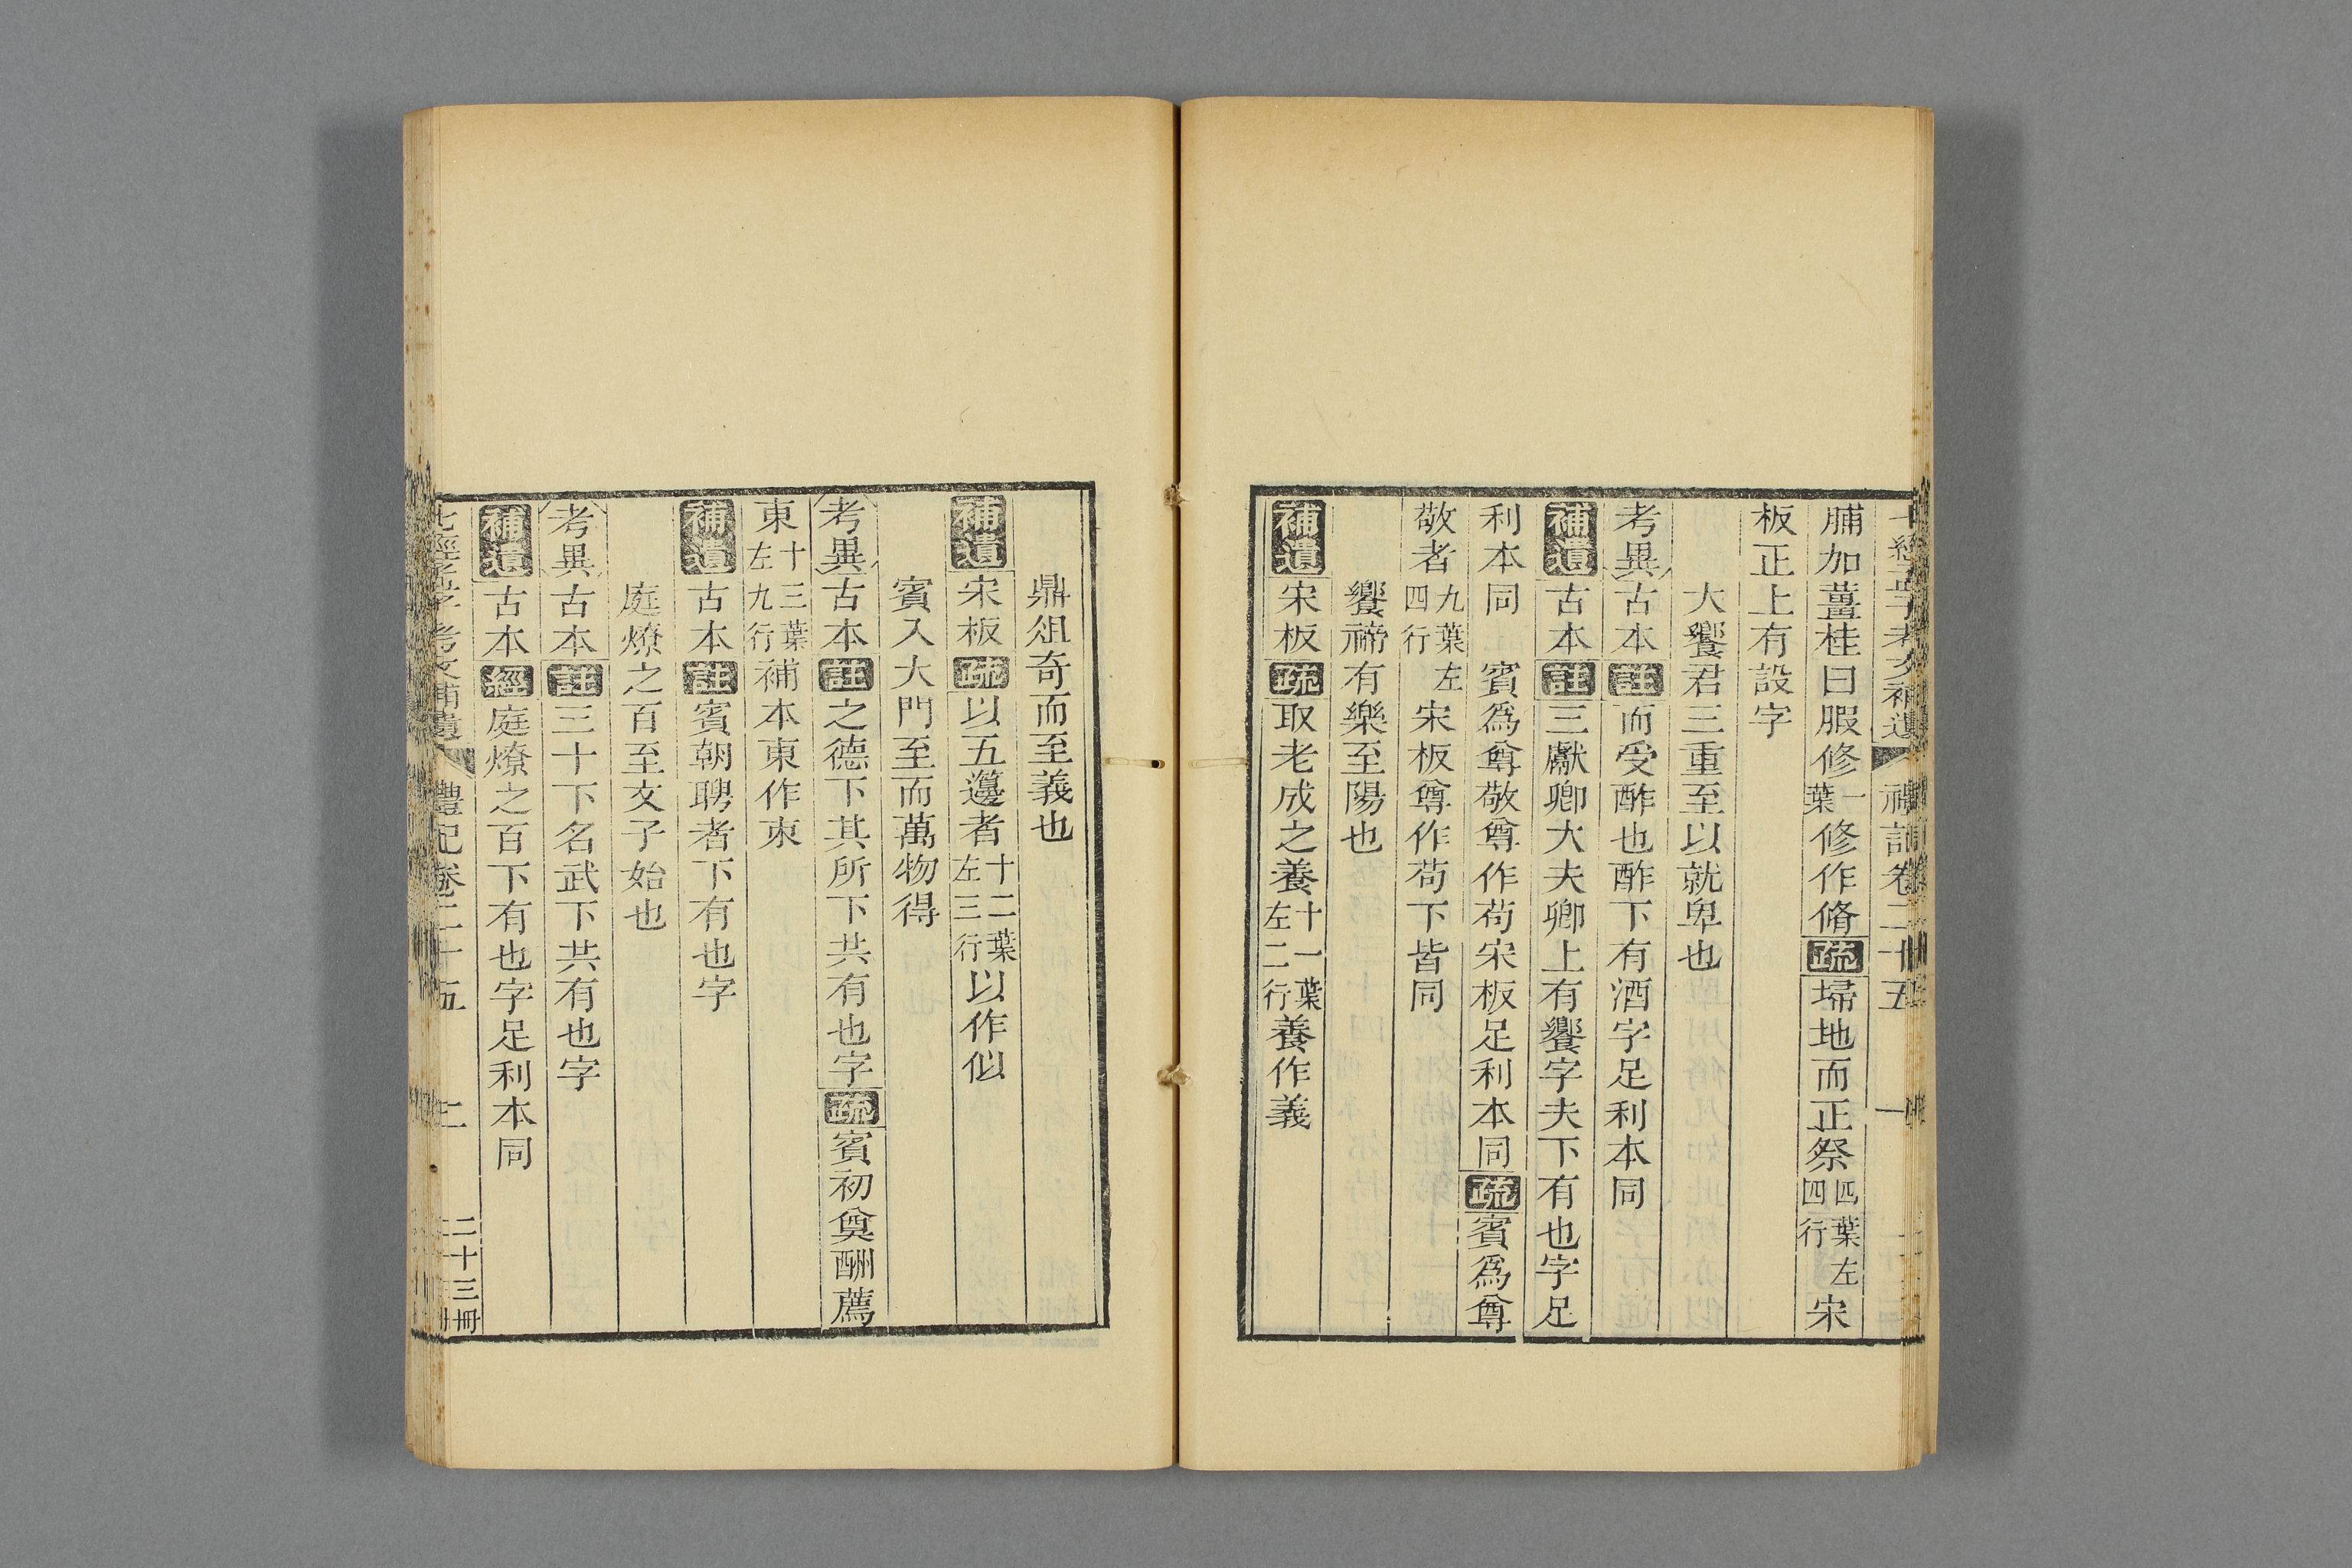 七經孟子考文補遺 禮記卷二十五 一
脯加薑桂曰腶修一葉修作脩疏埽地而正祭四葉左四行宋
板正上有設字
大饗君三重至以就卑也
考異古本註而受酢也酢下有酒字足利本同
補遺古本註三獻卿大夫卿上有饗字夫下有也字足
利本同 賓爲尊敬尊作苟宋板足利本同疏賓爲尊
敬者九葉左四行宋板尊作苟下皆同
饗禘有樂至陽也
補遺宋板疏取老成之養十一葉左二行養作義
鼎俎奇而至義也
補遺宋板疏以五籩者十二葉左三行以作似
賓入大門至而萬物得
考異古本註之德下其所下共有也字疏賓初奠酬薦
東十三葉左九行補本東作柬
補遺古本註賓朝聘者下有也字
庭燎之百至文子始也
考異古本註三十下名武下共有也字
補遺古本經庭燎之百下有也字足利本同
七經孟子考文補遺 禮記卷二十五 二 二十三冊